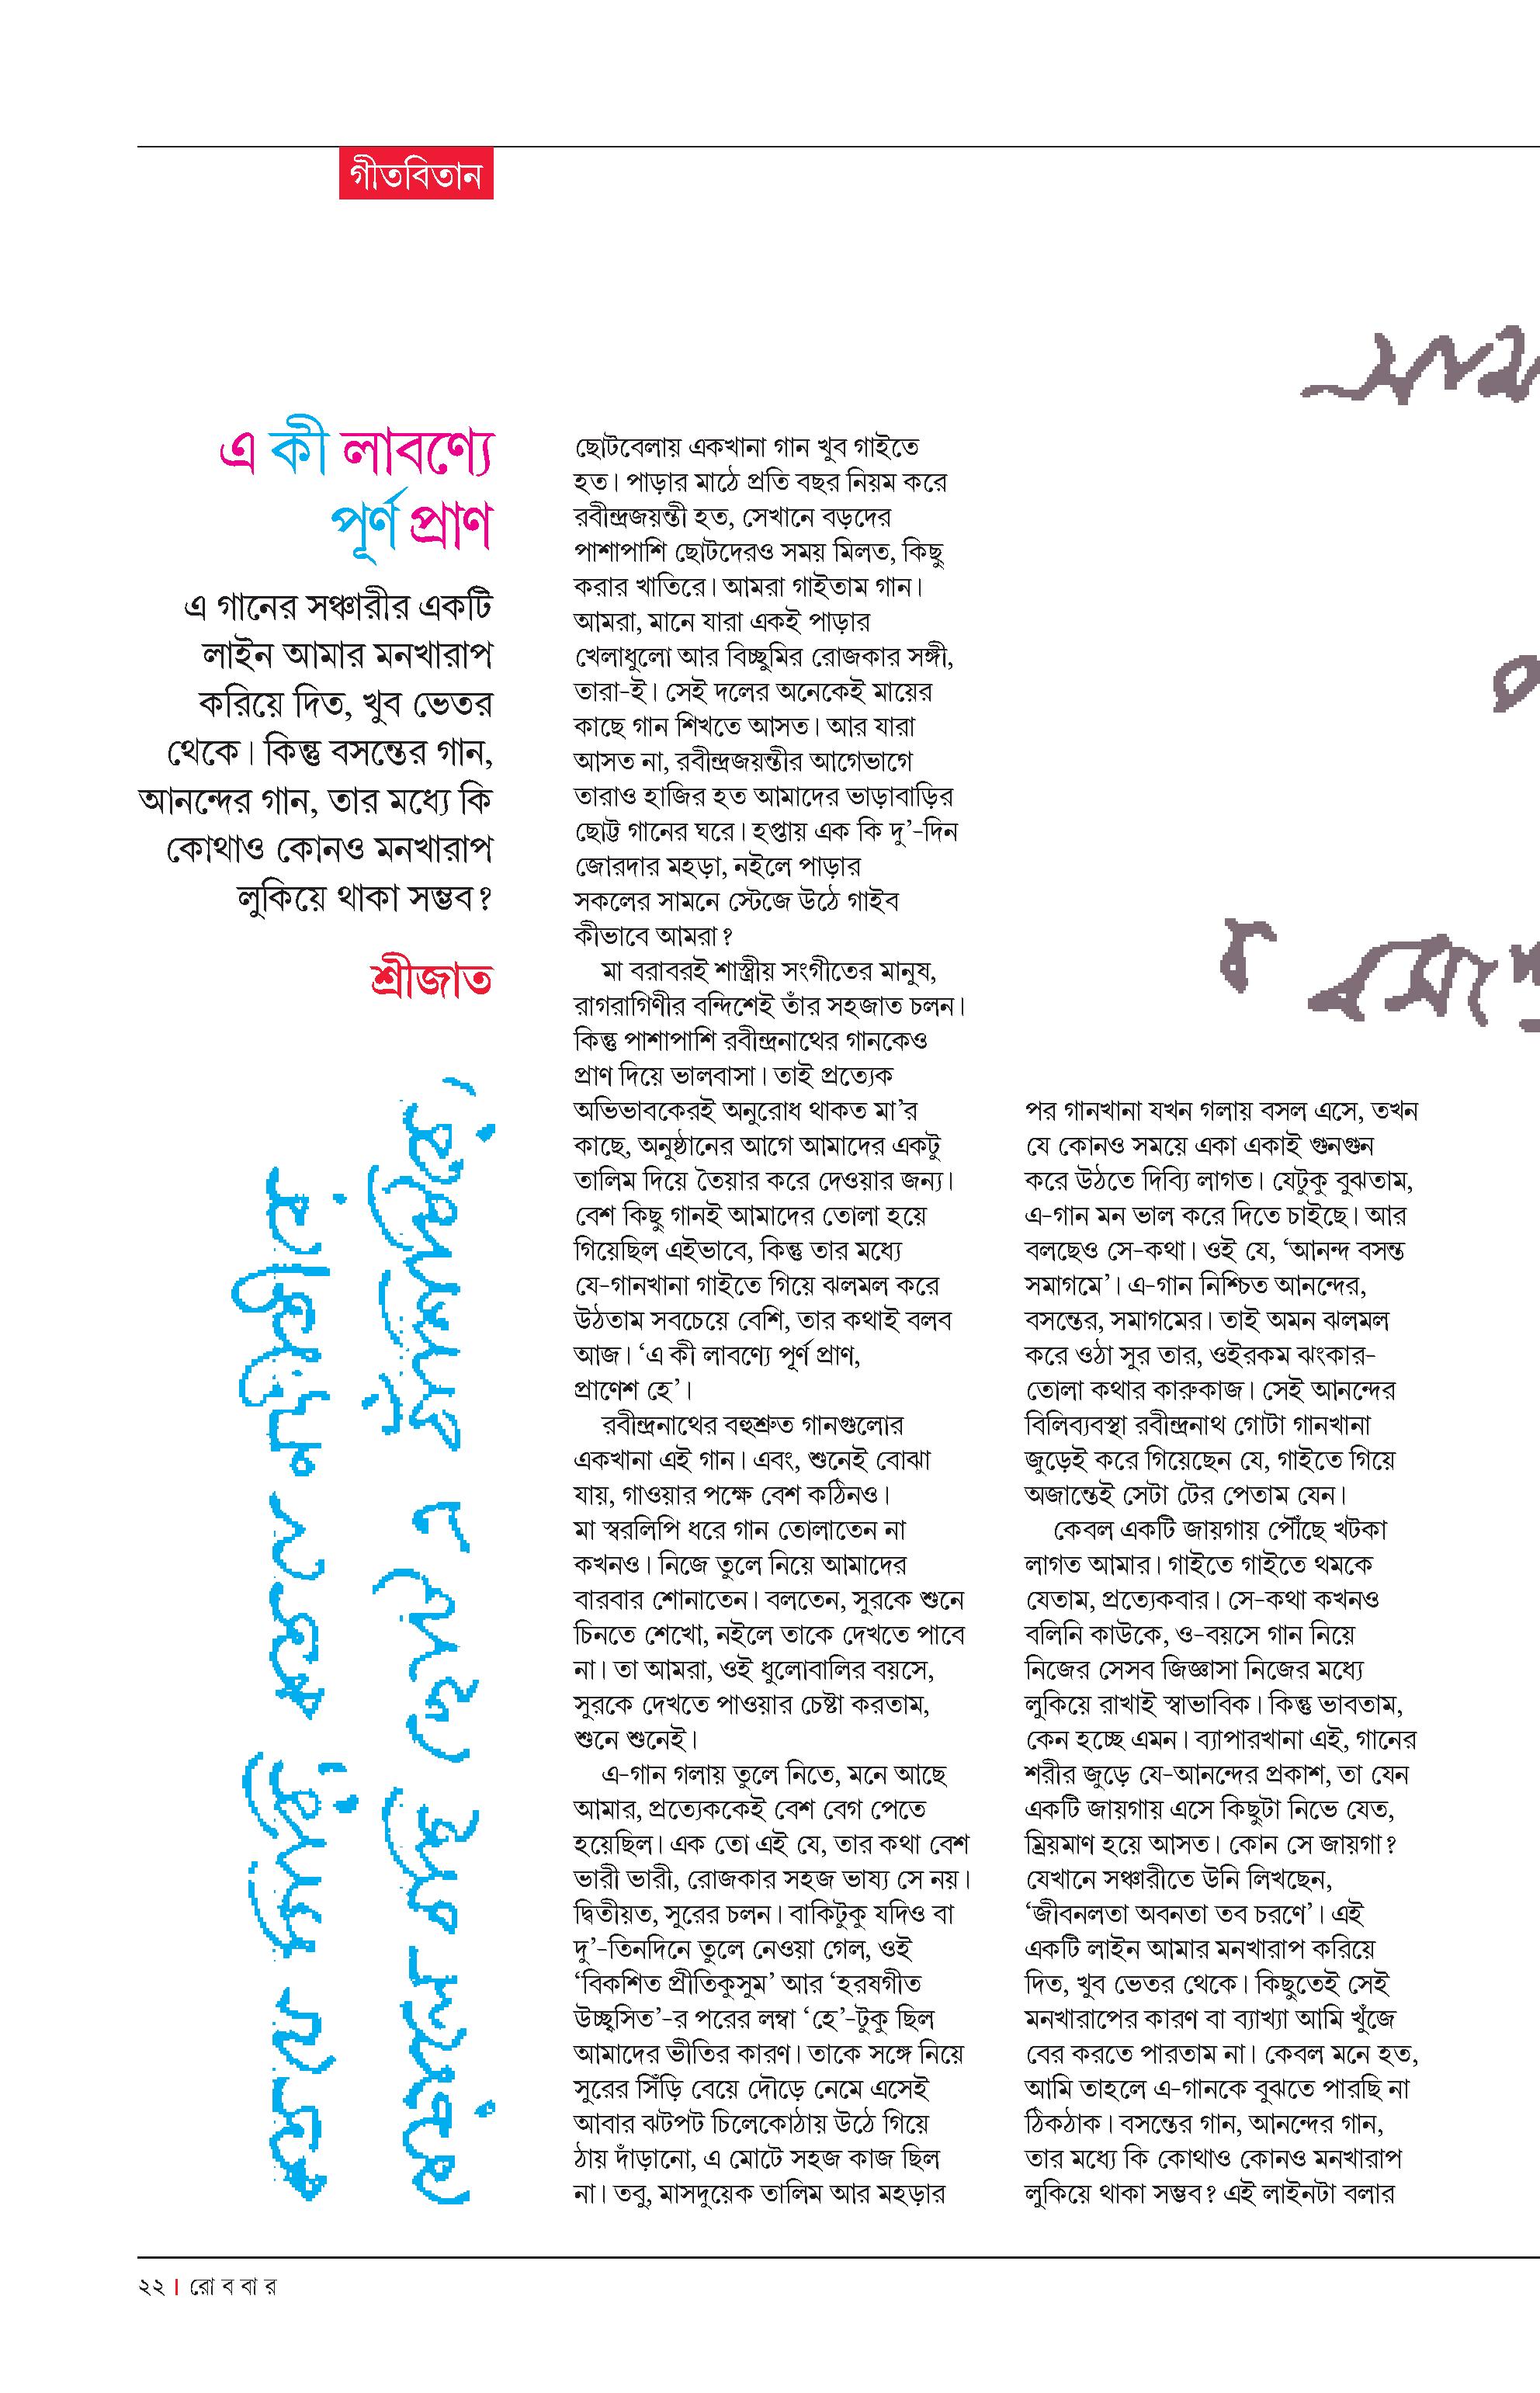 গীতবিতান
এ কী লাবণ্যে
পূর্ণ প্রাণ
এ গানের সঞ্চারীর একটি
লাইন আমার মনখারাপ
করিয়ে দিত, খুব ভেতর
থেকে। কিন্তু বসন্তের গান,
আনন্দের গান, তার মধ্যে কি
কোথাও কোনও মনখারাপ
লুকিয়ে থাকা সম্ভব?
শ্রীজাত
ছোটবেলায় একখানা গান খুব গাইতে
হত। পাড়ার মাঠে প্রতি বছর নিয়ম করে
রবীন্দ্রজয়ন্তী হত, সেখানে বড়দের
পাশাপাশি ছোটদেরও সময় মিলত, কিছু
করার খাতিরে। আমরা গাইতাম গান।
আমরা, মানে যারা একই পাড়ার
খেলাধুলো আর বিচ্ছুমির রোজকার সঙ্গী,
তারা-ই। সেই দলের অনেকেই মায়ের
কাছে গান শিখতে আসত। আর যারা
আসত না, রবীন্দ্রজয়ন্তীর আগেভাগে
তারাও হাজির হত আমাদের ভাড়াবাড়ির
ছোট্ট গানের ঘরে। হপ্তায় এক কি দু’-দিন
জোরদার মহড়া, নইলে পাড়ার
সকলের সামনে স্টেজে উঠে গাইব
কীভাবে আমরা?
মা বরাবরই শাস্ত্রীয় সংগীতের মানুষ,
রাগরাগিণীর বন্দিশেই তাঁর সহজাত চলন।
কিন্তু পাশাপাশি রবীন্দ্রনাথের গানকেও
প্রাণ দিয়ে ভালবাসা। তাই প্রত্যেক
অভিভাবকেরই অনুরোধ থাকত মা’র
কাছে, অনুষ্ঠানের আগে আমাদের একটু
তালিম দিয়ে তৈয়ার করে দেওয়ার জন্য।
বেশ কিছু গানই আমাদের তোলা হয়ে
গিয়েছিল এইভাবে, কিন্তু তার মধ্যে
যে-গানখানা গাইতে গিয়ে ঝলমল করে
উঠতাম সবচেয়ে বেশি, তার কথাই বলব
আজ। ‘এ কী লাবণ্যে পূর্ণ প্রাণ,
প্রাণেশ হে’।
রবীন্দ্রনাথের বহুশ্রুত গানগুলোর
একখানা এই গান। এবং, শুনেই বোঝা
যায়, গাওয়ার পক্ষে বেশ কঠিনও।
মা স্বরলিপি ধরে গান তোলাতেন না
কখনও। নিজে তুলে নিয়ে আমাদের
বারবার শোনাতেন। বলতেন, সুরকে শুনে
চিনতে শেখো, নইলে তাকে দেখতে পাবে
না। তা আমরা, ওই ধুলোবালির বয়সে,
সুরকে দেখতে পাওয়ার চেষ্টা করতাম,
শুনে শুনেই।
এ-গান গলায় তুলে নিতে, মনে আছে
আমার, প্রত্যেককেই বেশ বেগ পেতে
হয়েছিল। এক তো এই যে, তার কথা বেশ
ভারী ভারী, রোজকার সহজ ভাষ্য সে নয়।
দ্বিতীয়ত, সুরের চলন। বাকিটুকু যদিও বা
দু’-তিনদিনে তুলে নেওয়া গেল, ওই
‘বিকশিত প্রীতিকুসুম’ আর ‘হরষগীত
উচ্ছ্বসিত’-র পরের লম্বা ‘হে’-টুকু ছিল
আমাদের ভীতির কারণ। তাকে সঙ্গে নিয়ে
সুরের সিঁড়ি বেয়ে দৌড়ে নেমে এসেই
আবার ঝটপট চিলেকোঠায় উঠে গিয়ে
ঠায় দাঁড়ানো, এ মোটে সহজ কাজ ছিল
না। তবু, মাসদুয়েক তালিম আর মহড়ার
পর গানখানা যখন গলায় বসল এসে, তখন
যে কোনও সময়ে একা একাই গুনগুন
করে উঠতে দিব্যি লাগত। যেটুকু বুঝতাম,
এ-গান মন ভাল করে দিতে চাইছে। আর
বলছেও সে-কথা। ওই যে, ‘আনন্দ বসন্ত
সমাগমে’। এ-গান নিশ্চিত আনন্দের,
বসন্তের, সমাগমের। তাই অমন ঝলমল
করে ওঠা সুর তার, ওইরকম ঝংকার-
তোলা কথার কারুকাজ। সেই আনন্দের
বিলিব্যবস্থা রবীন্দ্রনাথ গোটা গানখানা
জুড়েই করে গিয়েছেন যে, গাইতে গিয়ে
অজান্তেই সেটা টের পেতাম যেন।
কেবল একটি জায়গায় পৌঁছে খটকা
লাগত আমার। গাইতে গাইতে থমকে
যেতাম, প্রত্যেকবার। সে-কথা কখনও
বলিনি কাউকে, ও-বয়সে গান নিয়ে
নিজের সেসব জিজ্ঞাসা নিজের মধ্যে
লুকিয়ে রাখাই স্বাভাবিক। কিন্তু ভাবতাম,
কেন হচ্ছে এমন। ব্যাপারখানা এই, গানের
শরীর জুড়ে যে-আনন্দের প্রকাশ, তা যেন
একটি জায়গায় এসে কিছুটা নিভে যেত,
ম্রিয়মাণ হয়ে আসত। কোন সে জায়গা?
যেখানে সঞ্চারীতে উনি লিখছেন,
‘জীবনলতা অবনতা তব চরণে’। এই
একটি লাইন আমার মনখারাপ করিয়ে
দিত, খুব ভেতর থেকে। কিছুতেই সেই
মনখারাপের কারণ বা ব্যাখ্যা আমি খুঁজে
বের করতে পারতাম না। কেবল মনে হত,
আমি তাহলে এ-গানকে বুঝতে পারছি না
ঠিকঠাক। বসন্তের গান, আনন্দের গান,
তার মধ্যে কি কোথাও কোনও মনখারাপ
লুকিয়ে থাকা সম্ভব? এই লাইনটা বলার
২২ । রো ব বা র